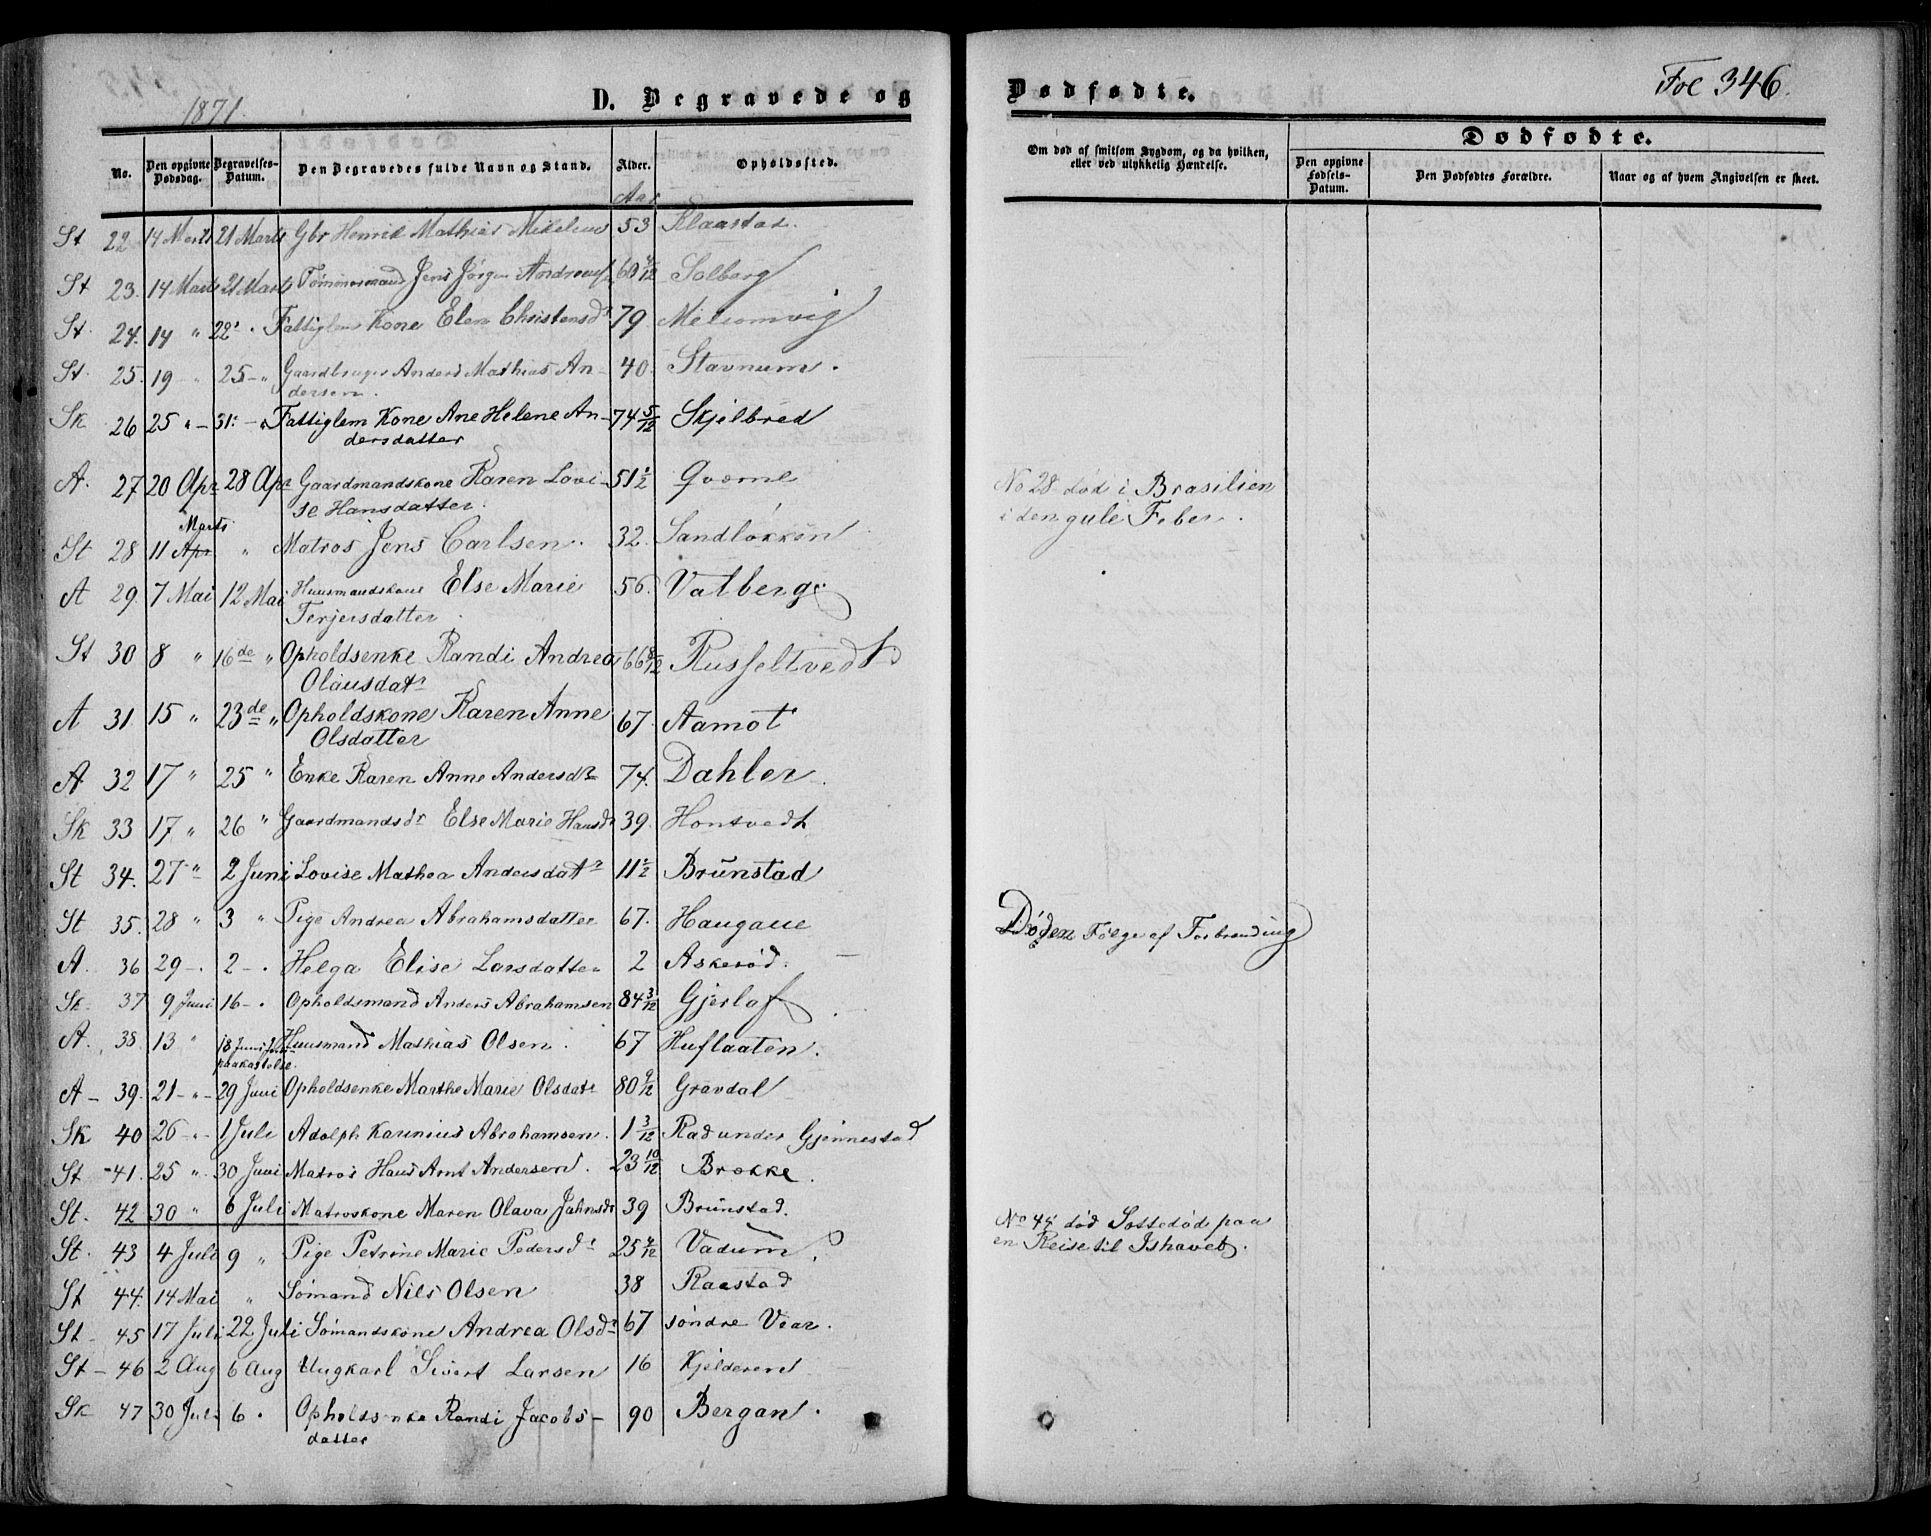 1871.
D. Begravede og
No.
Den opgivne Dødsdag.
Begravelses-Datum.
Den Begravedes fulde Navn og Stand.
Alder.
Opholdssted.
Aar
St 22 14 Marts 21 Marts Gbr Henrik Mathias Mikelsen 53 Klaastad.
St 23. 14 Marts 21 Marts Tømmermand Jens Jørgen 60 Solberg
St. 24. 14 " 22 " Fattiglem Kone Elen Christensdr 79 Melsomvig
St. 25. 19 " 25 - " Gaardbruger Anders Mathias An- 40. Stavnum.
dersen.
Sk 26 25 " - 31: - " Fattiglem Kone Ane Helene An- 74 5/12 Skjelbred
dersdatter
A. 27 20 Apr 28 Apr Gaardmandskone Karen Lovi- 51 1/2 Qverne
se Hansdatter.
Marts
St 28 11 Apr " Matros Jens Carlsen. 32. Sandløkken
A 29. 7 Mai 12 Mai Huusmandskone Else Marie 56. Valberg
Terjersdatter
St 30 8 " 16de " Opholdsenke Randi Andrea 66 8/12 Russeltvedt
Olausdatr
A 31 15 " 23de " Opholdskone Karen Anne 67. Aamot
Olsdatter
A 32 17 " 25 " Enke Karen Anne Andersdr 74. Dahler.
Sk 33 17 " 26 " Gaardmandsdr Else Marie Hansdr 39. Hontvedt
St 34. 27 " 2 Juni Lovise Mathea Andersdatr 11 1/2 Brunstad
St 35. 28 " 3 " Pige Andrea Abrahamsdatter 67. Haugane
A. 36 29 - . 2 - . Helga Elise Larsdatter 2 Askerød.
Sk - 37 9 Juni 16 - . Opholdsmand Anders Abrahamsen 84 3/12 Gjerla
A. 38 13 " 18 Juni Huusmand Mathias Olsen. 67 Huflaaten.
paakastelse.
A - 39. 21 - " - 29 Juni Opholdsenke Marthe Marie Olsdatr 80 9/12 Gravdal
Sk 40 26 - " - 1 Juli Adolph Karinius Abrahamsen. 1 3/12 Rad under Gjennestad
St - 41. 25 " . 30 Juni Matros Hans Arnt Andersen. 23 10/12 Brekke.
St. 42 30 " 6 Juli Matroskone Maren Olava Jahnsdr 39 Brunstad.
St. 43 4 Juli 9 " Pige Petrine Marie Pedersdr 25 4/12 Vadum
St 44. 14 Mai " Sømand Nils Olsen 38 Raastad
St - 45 17 Juli 22 Juli Sømandskone Andrea Olsdr 67 søndre Vear.
St - 46 2 Aug 6 Aug Ungkarl Sivert Larsen 16 Kjelderen
Sk 47 30 Juli 6 . Opholdsenke Randi Jacobs- 90 Bergan.
datter
Dødfødte.
Fol 346.
Om død af smitsom Sygdom, og da hvilken, eller ved ulykkelig Hændelse.
Dødfødte.
Den opgivne Fødsels-Datum.
Den Dødfødtes Forældre.
Naar og af hvem Angivelsen er skeet.
No 28 død i Brasilien
i den gule Feber.
Døden Følge af Forbrænding
No 44 død Sottedød paa
en Reise til Ishavet.